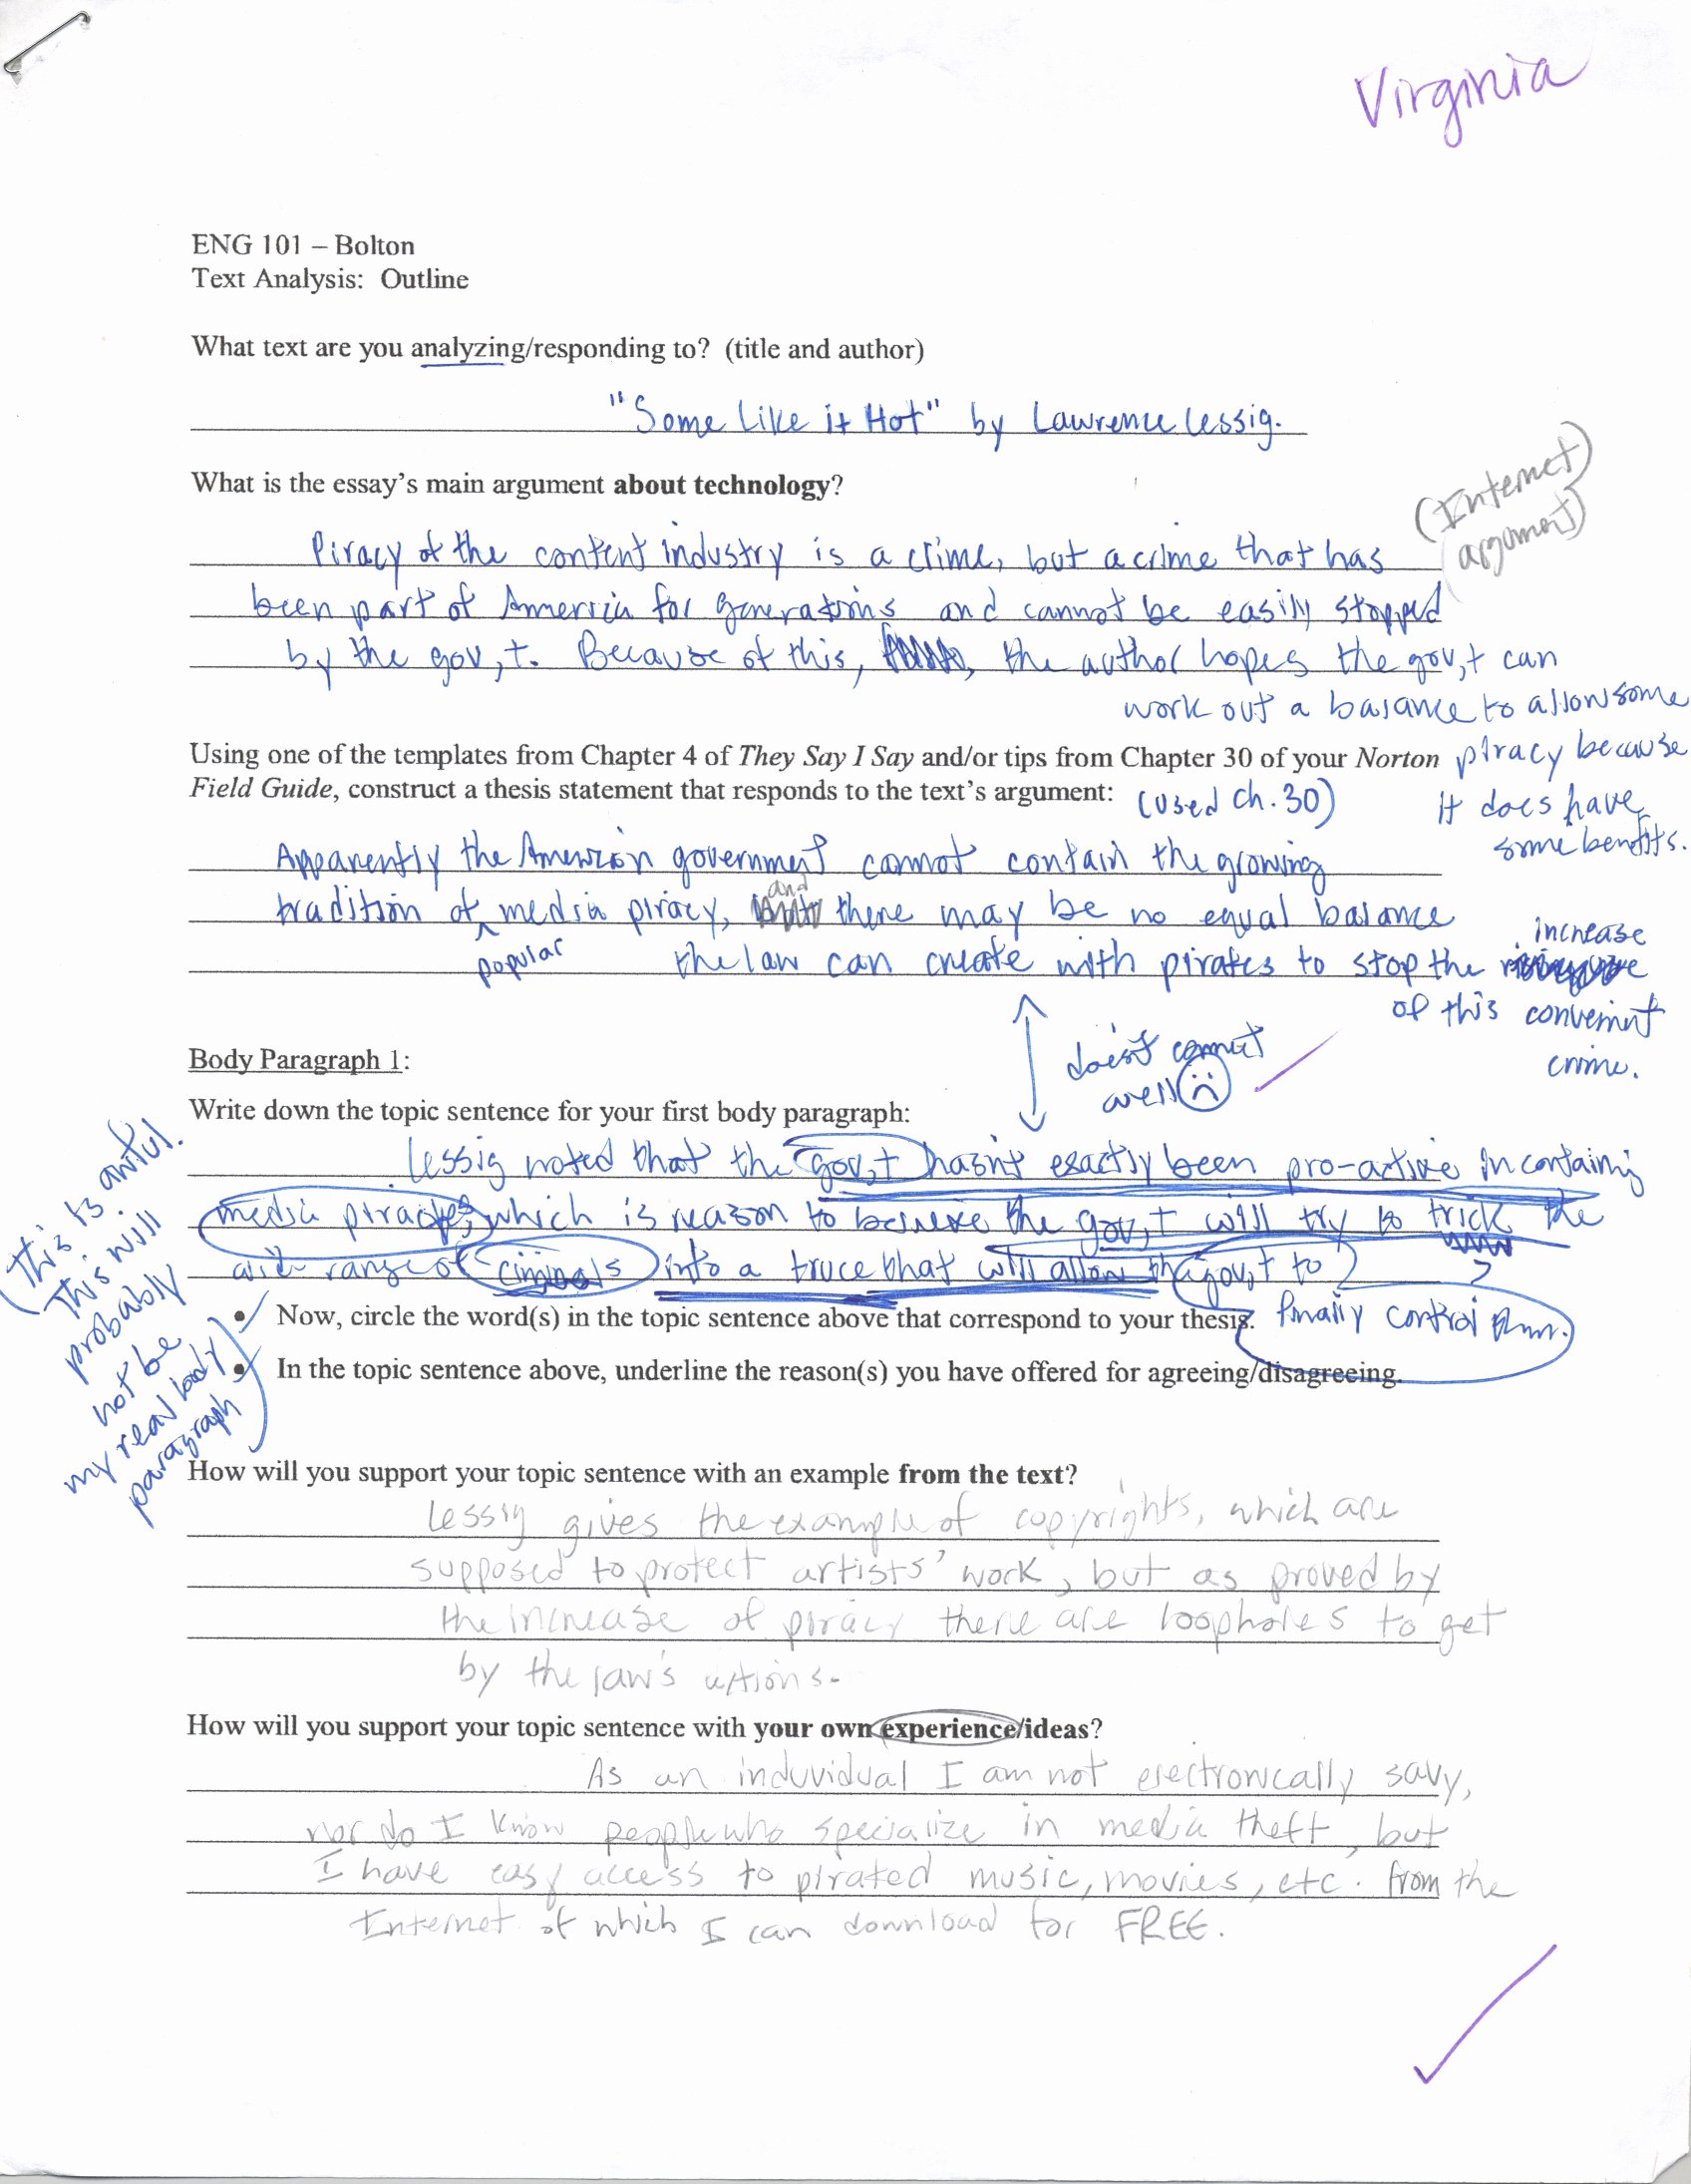 Virginia
ENG 101 – Bolton
Text Analysis: Outline
What text are you analyzing/responding to? (title and author)
"Some Like it Hot" by Lawrence Lessig.
What is the essay's main argument about technology?
(Internet
argument)
Piracy of the content industry is a crime, but a crime that has
been part of America for generations and cannot be easily stopped
by the gov,t. Because of this, the author hopes the gov,t can
work out a balance to allow some
piracy because
it does have
some benefits.
Using one of the templates from Chapter 4 of They Say I Say and/or tips from Chapter 30 of your Norton
Field Guide, construct a thesis statement that responds to the text's argument: (used ch. 30)
Apparently the American government cannot contain the growing
tradition of popular media piracy, and there may be no equal balance
the law can create with pirates to stop the increase
of this convenient
crime.
doesn't connect
well
Body Paragraph 1:
Write down the topic sentence for your first body paragraph:
Lessig noted that the gov,t hasn't exactly been pro-active in containing
media pirates, which is reason to believe the gov,t will try to trick the
wide range of criminals into a truce that will allow the gov,t to
finally control them.
(This is awful.
This will
probably
not be
my real body
paragraph)
• Now, circle the word(s) in the topic sentence above that correspond to your thesis.
• In the topic sentence above, underline the reason(s) you have offered for agreeing/disagreeing.
How will you support your topic sentence with an example from the text?
Lessig gives the example of copyrights, which are
supposed to protect artists' work, but as proved by
the increase of piracy there are loopholes to get
by the law's actions.
How will you support your topic sentence with your own experience/ideas?
As an induvidual I am not electronically savy,
nor do I know people who specialize in media theft, but
I have easy access to pirated music, movies, etc. from the
Internet of which I can download for FREE.